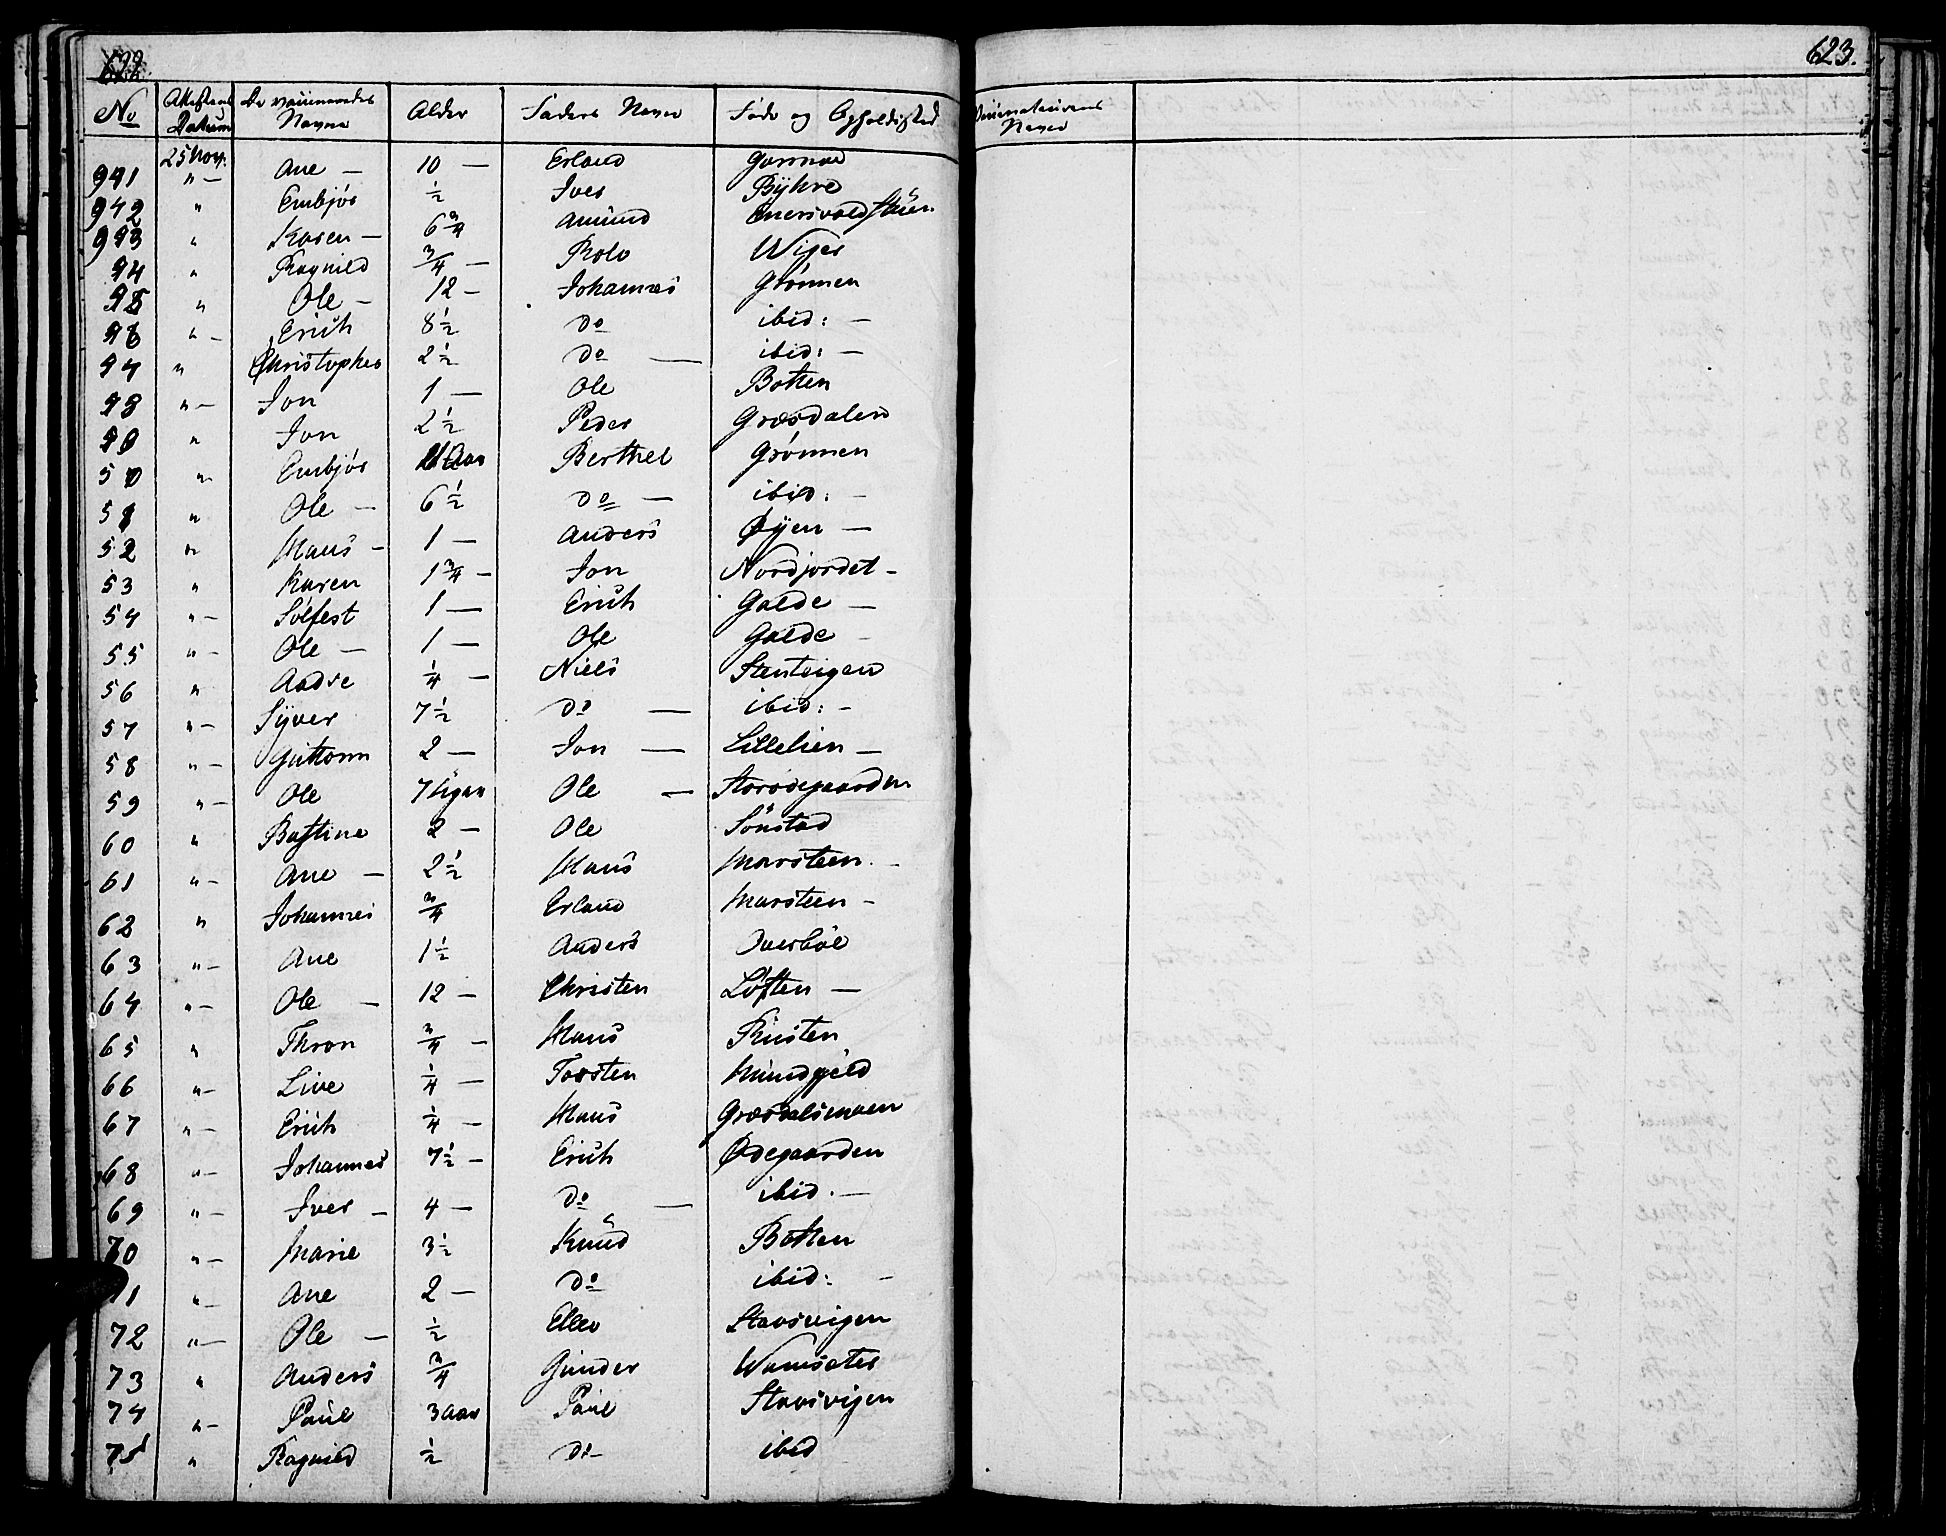 622.
No Attestens Datum De vaccineredes Navne Alder Faders Navn Føde og Opholdssted
941 25 Nov. " — Ane — 10 — Erland Garmoe
942 " Embjør ½ Iver Byhre
943 " Karen — 6¾ Amund
44 " Ragnild ¾ — Rolv Wiger
45 " Ole — 12 — Johannes Grønnen
46 " — Erich 8½ Do ibid: —
47 " Christopher 2½ Do — ibid: —
48 " — Jon 1 — Ole Botten
49 " Jon 2½ Peder Græsdalen
50 " Embjør Aar Berthel Grønnen
51 " Ole — 6½ Do — ibid: —
52 " Hans — 1 — Anders Øyen —
53 " Karen 1¾ — Jon Nordjordet —
54 " — Sølfest 1 — Erich Galde —
55 " — Ole — 1 — Ole Galde —
56 " Aadne ¼ — Niels Stenteigen
57 " — Syver 7½ Do — ibid: —
58 " — Guttorm 2 — Jon — Lillelien —
59 " — Ole 7 Uger Ole — Storødegaarden
60 " Bastine 2 — Ole Sønstad
61 " — Ane — 2½ Hans Marsteen —
62 " Johannes ¾ Erland Marsteen —
63 " — Ane 1½ Anders Overbøe
64 " — Ole — 12 — Christen Løften —
65 " Thron ¾ — Hans Rusten
66 " — Live ¼ — Torsten Mundgjeld
67 " — Erich ¼ — Hans Græsdalsmoen
68 " — Johannes 7½ — Erich Ødegaarden
69 " — Iver — 4 — Do — ibid. —
70 " — Marie 3½ Knud Botten
71 " — Ane 2 — Do ibid: —
72 " — Ole — ½ Ellev Stavsvigen
73 " Anders ¾ Gunder
74 " — Paul 3 Aar Paul Stavsvigen
75 " Ragnild ½ Do — ibid
623.
Vaccinateurens Navn